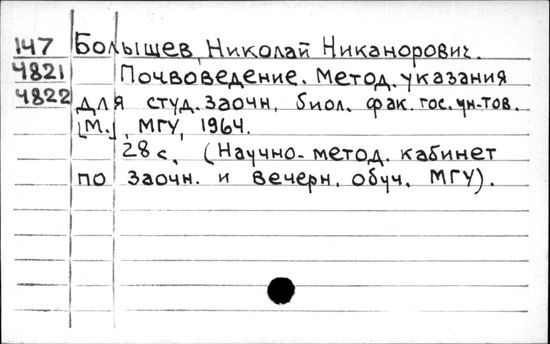 147 Болышев, Николай Никанорович.
4821 Почвоведение. Метод. указания
4822 для студ. заочн. биол. фак. гос. ун-тов.
[М.], МГУ, 1964.
28 с. (Научно-метод. кабинет
по заочн. и вечерн. обуч. МГУ).